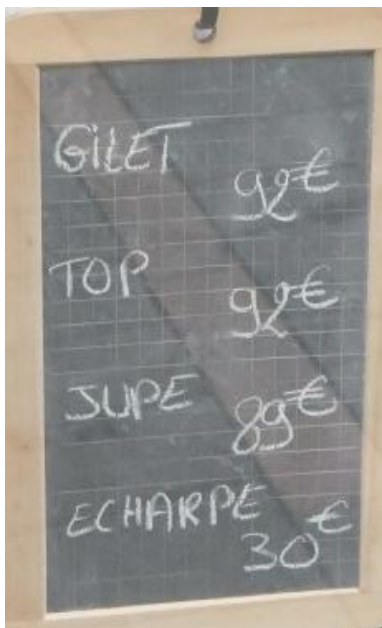 GILET
92€
TOP
92€
JUPE
89€
ECHARPE
30€